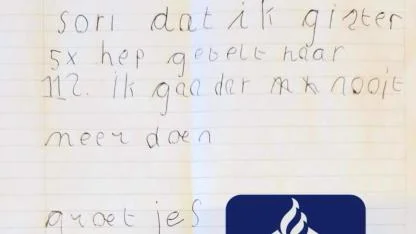 sori dat ik gister
5x hep gebelt naar
112. ik gaa dat nooit
meer doen
groet jes